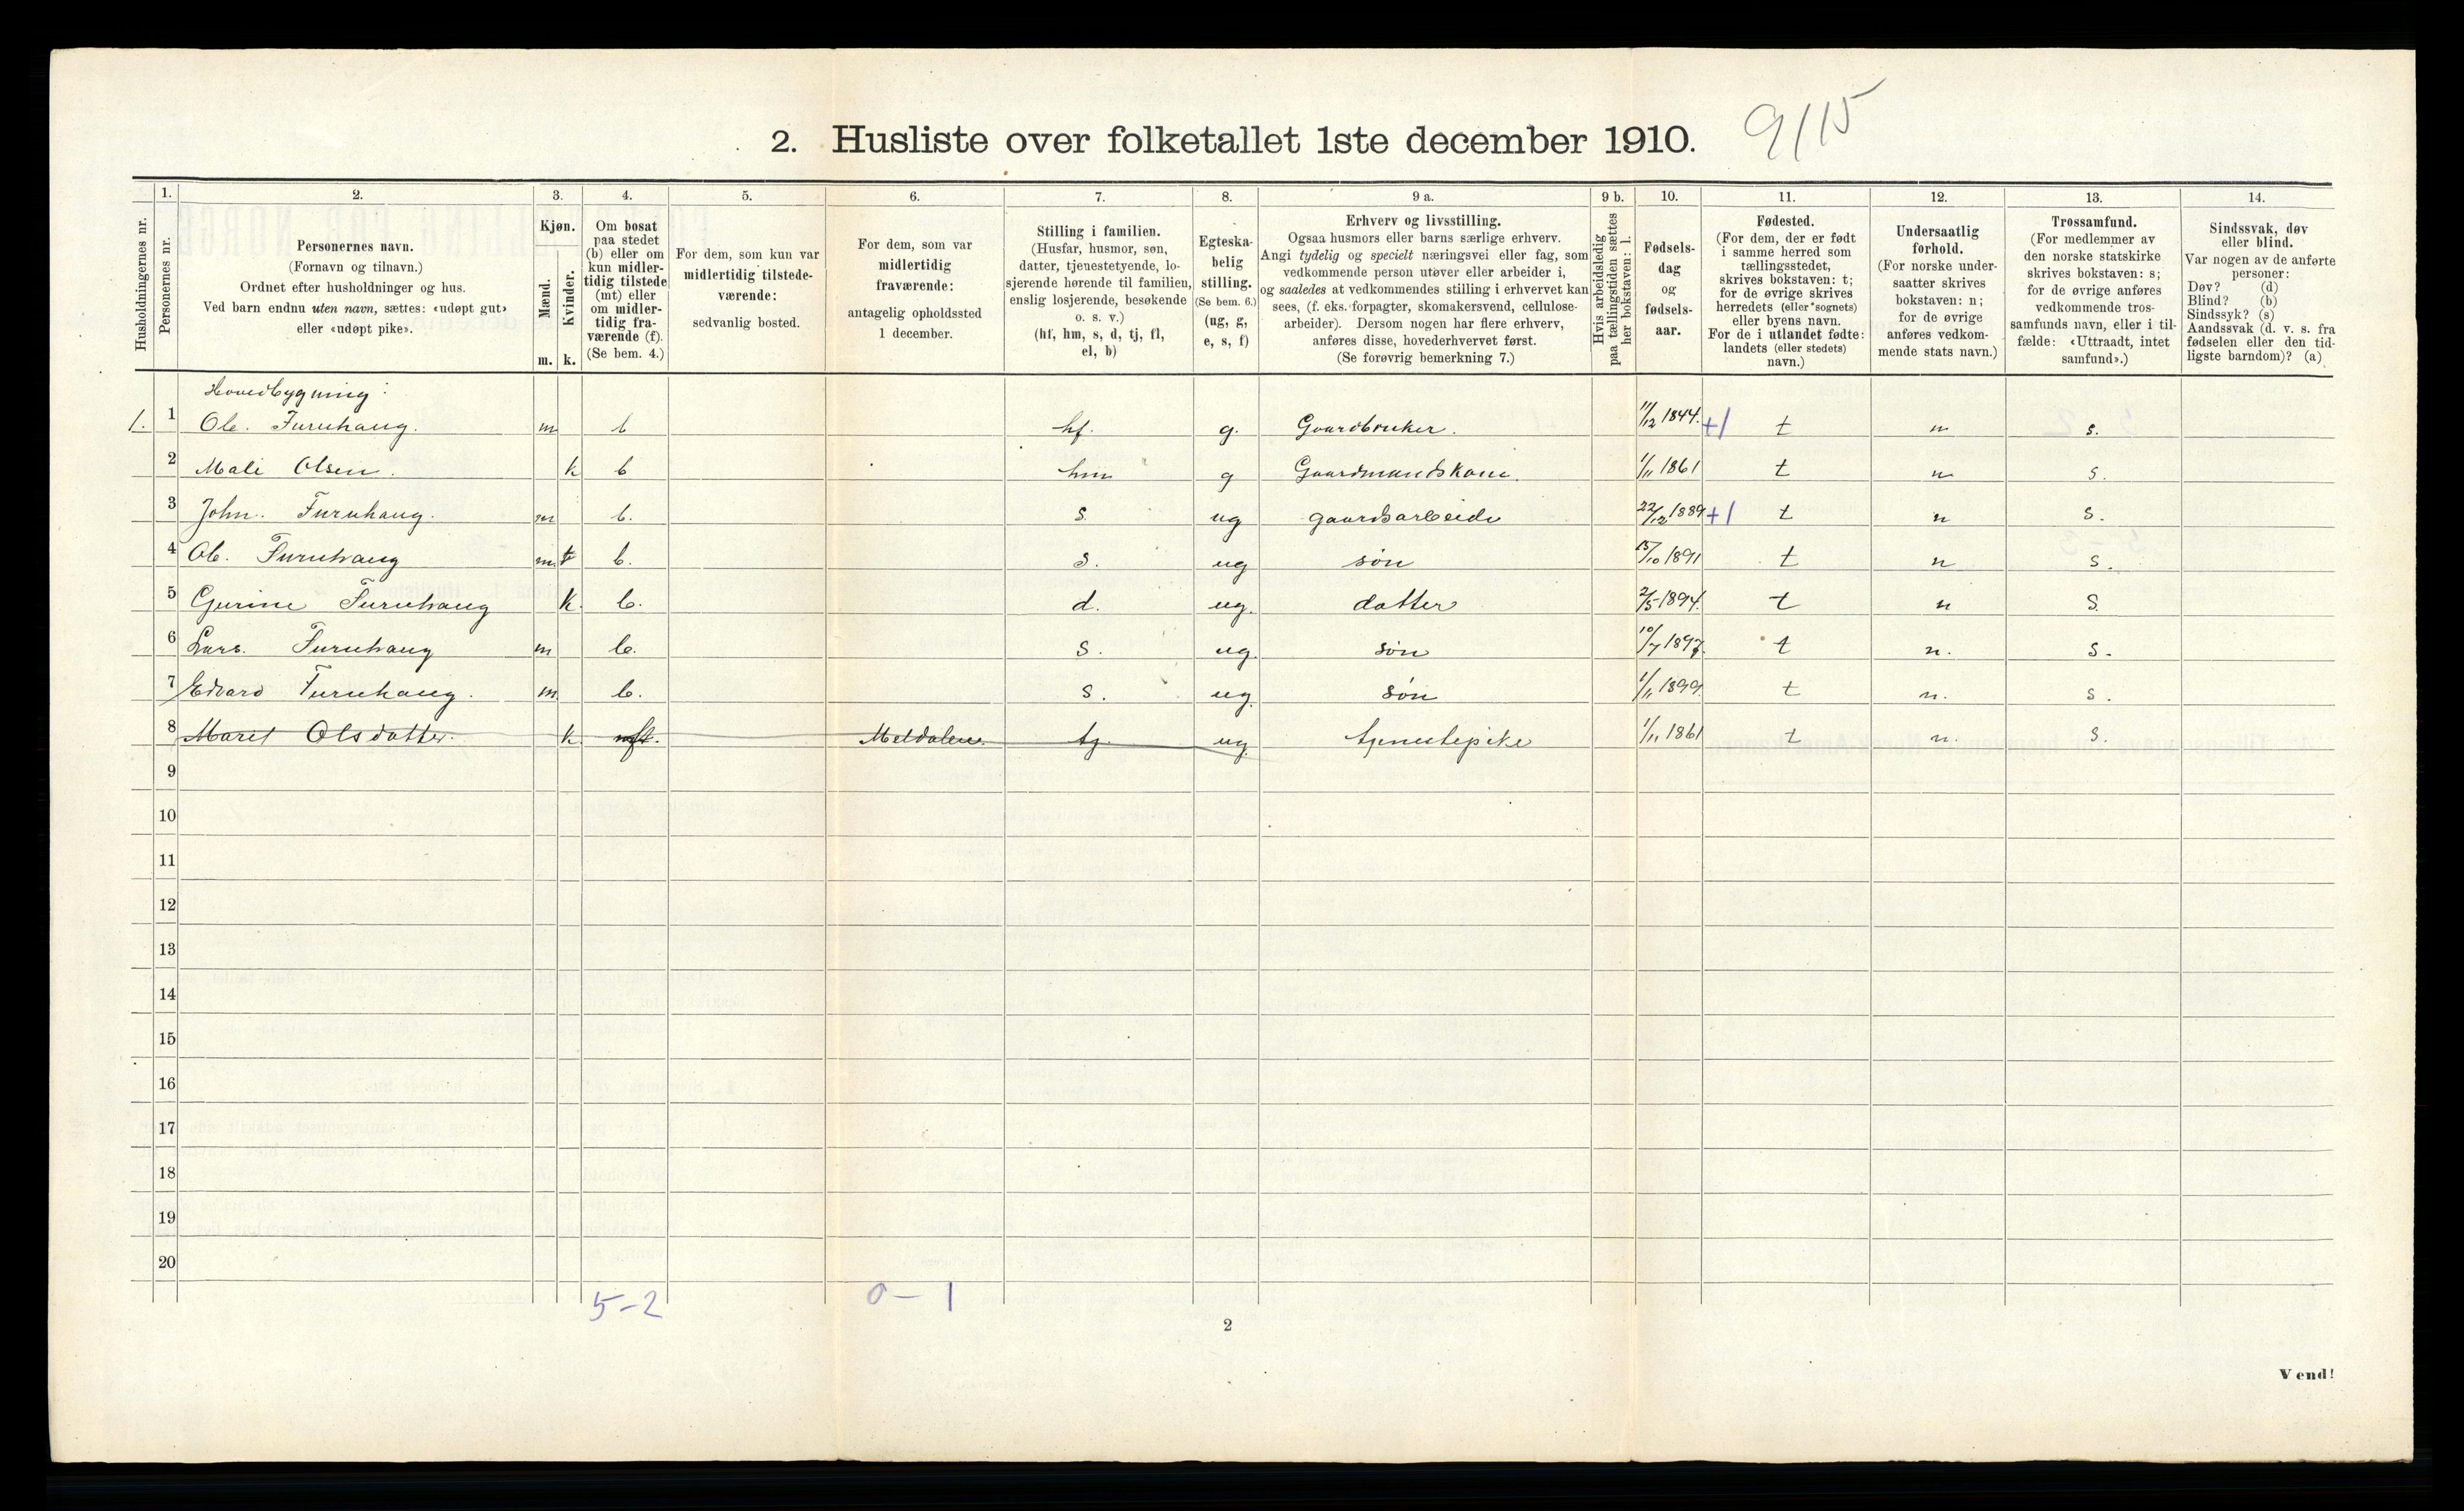 2. Husliste over folketallet 1ste december 1910. 9/15
1. 2. 3. 4. 5. 6. 7. 8. 9 a. 9 b. 10. 11. 12. 13. 14.
Husholdningernes nr.
Personernes nr.
Personernes navn.
(Fornavn og tilnavn.)
Ordnet efter husholdninger og hus.
Ved barn endnu uten navn, sættes: «udøpt gut»
eller «udøpt pike».
Kjøn.
Mænd.
Kvinder.
m. k.
Om bosat
paa stedet
(b) eller om
kun midler-
tidig tilstede
(mt) eller
om midler-
tidig fra-
værende (f).
(Se bem. 4.)
For dem, som kun var
midlertidig tilstede-
værende:
sedvanlig bosted.
For dem, som var
midlertidig
fraværende:
antagelig opholdssted
1 december.
Stilling i familien.
(Husfar, husmor, søn,
datter, tjenestetyende, lo-
sjerende hørende til familien,
enslig losjerende, besøkende
o. s. v.)
(hf, hm, s, d, tj, fl,
el, b)
Egteska-
belig
stilling.
(Se bem. 6.)
(ug, g,
e, s, f)
Erhverv og livsstilling.
Ogsaa husmors eller barns særlige erhverv.
Angi tydelig og specielt næringsvei eller fag, som
vedkommende person utøver eller arbeider i,
og saaledes at vedkommendes stilling i erhvervet kan
sees, (f. eks. forpagter, skomakersvend, cellulose-
arbeider). Dersom nogen har flere erhverv,
anføres disse, hovederhvervet først.
(Se forøvrig bemerkning 7.)
Hvis arbeidsledig
paa tællingstiden sættes
her bokstaven: l.
Fødsels-
dag
og
fødsels-
aar.
Fødested.
(For dem, der er født
i samme herred som
tællingsstedet,
skrives bokstaven: t;
for de øvrige skrives
herredets (eller sognets)
eller byens navn.
For de i utlandet fødte:
landets (eller stedets)
navn.)
Undersaatlig
forhold.
(For norske under-
saatter skrives
bokstaven: n;
for de øvrige
anføres vedkom-
mende stats navn.)
Trossamfund.
(For medlemmer av
den norske statskirke
skrives bokstaven: s;
for de øvrige anføres
vedkommende tros-
samfunds navn, eller i til-
fælde: «Uttraadt, intet
samfund».)
Sindssvak, døv
eller blind.
Var nogen av de anførte
personer:
Døv? (d)
Blind? (b)
Sindssyk? (s)
Aandssvak (d. v. s. fra
fødselen eller den tid-
ligste barndom)? (a)
Hovedbygning:
1. 1 Ole. Furuhaug. m b hf. g. Gaardbruker. 11/12 1844. +1 t n s.
2 Mali Olsen. k b hm g Gaardmandskone. 1/11 1861 t n s.
3 John. Furuhaug. m b. s. ug gaardsarbeide 22/12 1889 +1 t n s.
4 Ole. Furuhaug m b. s. ug søn 15/10 1891 t n s.
5 Gurine Furuhaug k. b. d. ug. datter 2/5 1894. t n s.
6 Lars. Furuhaug m b. s. ug. søn 10/7 1897. t n. s.
7 Edvard Furuhaug. m. b. s. ug. søn 1/11 1899. t n. s.
8 Maret Olsdatter. k. Meldalen. tj. ug. tjenestepike 1/11 1861 t n. s.
9
10
11
12
13
14
15
16
17
18
19
20
5-2 0-1
2
Vend!